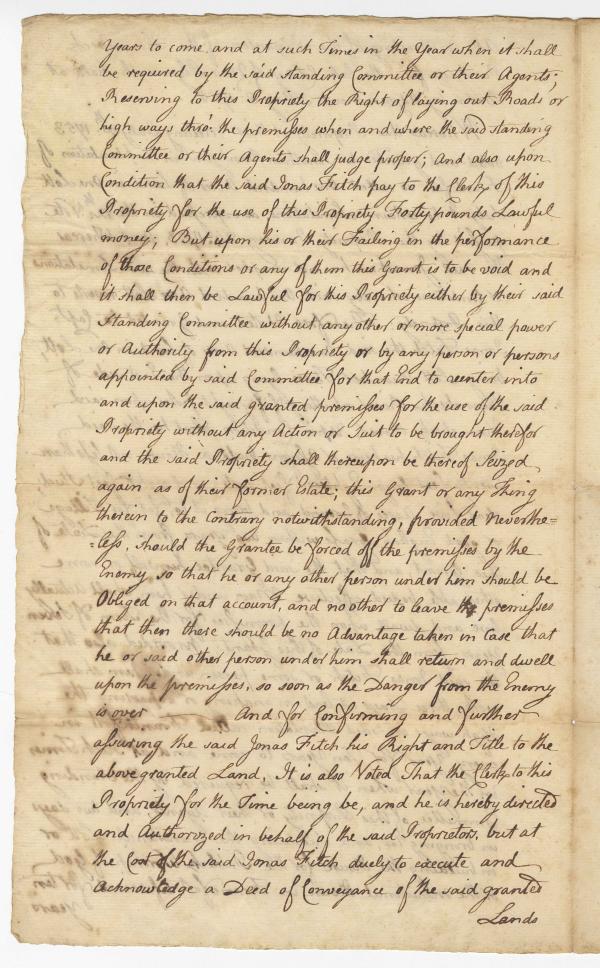 Years to come and at such Times in the Year when it shall
be required by the said standing Committee or their Agents;
Reserving to this Propriety the Right of laying out Roads or
high ways thro: the premisses when and where the said standing
Committee or their Agents shall judge proper; And also upon
Condition that the said Jonas Fitch pay to the Clerk of this
Propriety for the use of this Propriety Forty pounds Lawful
money; But upon his or their Failing in the performance
of those Conditions or any of them this Grant is to be void and
it shall then be Lawful for this Propriety either by their said
Standing Committee without any other or more special power
or Authority from this Propriety or by any person or persons
appointed by said Committee for that End to reenter into
and upon the said granted premisses for the use of the said
Propriety without any Action or Suit to be brought therefor
and the said Propriety shall thereupon be thereof Seized
again as of their former Estate; this Grant or any Thing
therein to the Contrary notwithstanding, provided Neverthe=
=less, should the Grantee be forced off the premisses by the
Enemy so that he or any other person under him should be
Obliged on that account, and no other to leave the premisses
that then there should be no Advantage taken in Case that
he or said other person under him shall return and dwell
upon the premisses, so soon as the Danger from the Enemy
is over ——— And for Confirming and further
assuring the said Jonas Fitch his Right and Title to the
above granted Land, It is also Noted That the Clerk to this
Propriety for the Time being be, and he is hereby directed
and Authorized in behalf of the said Proprietors, but at
the Cost of the said Jonas Fitch duely to execute and
Acknowledge a Deed of Conveyance of the said granted
Lands